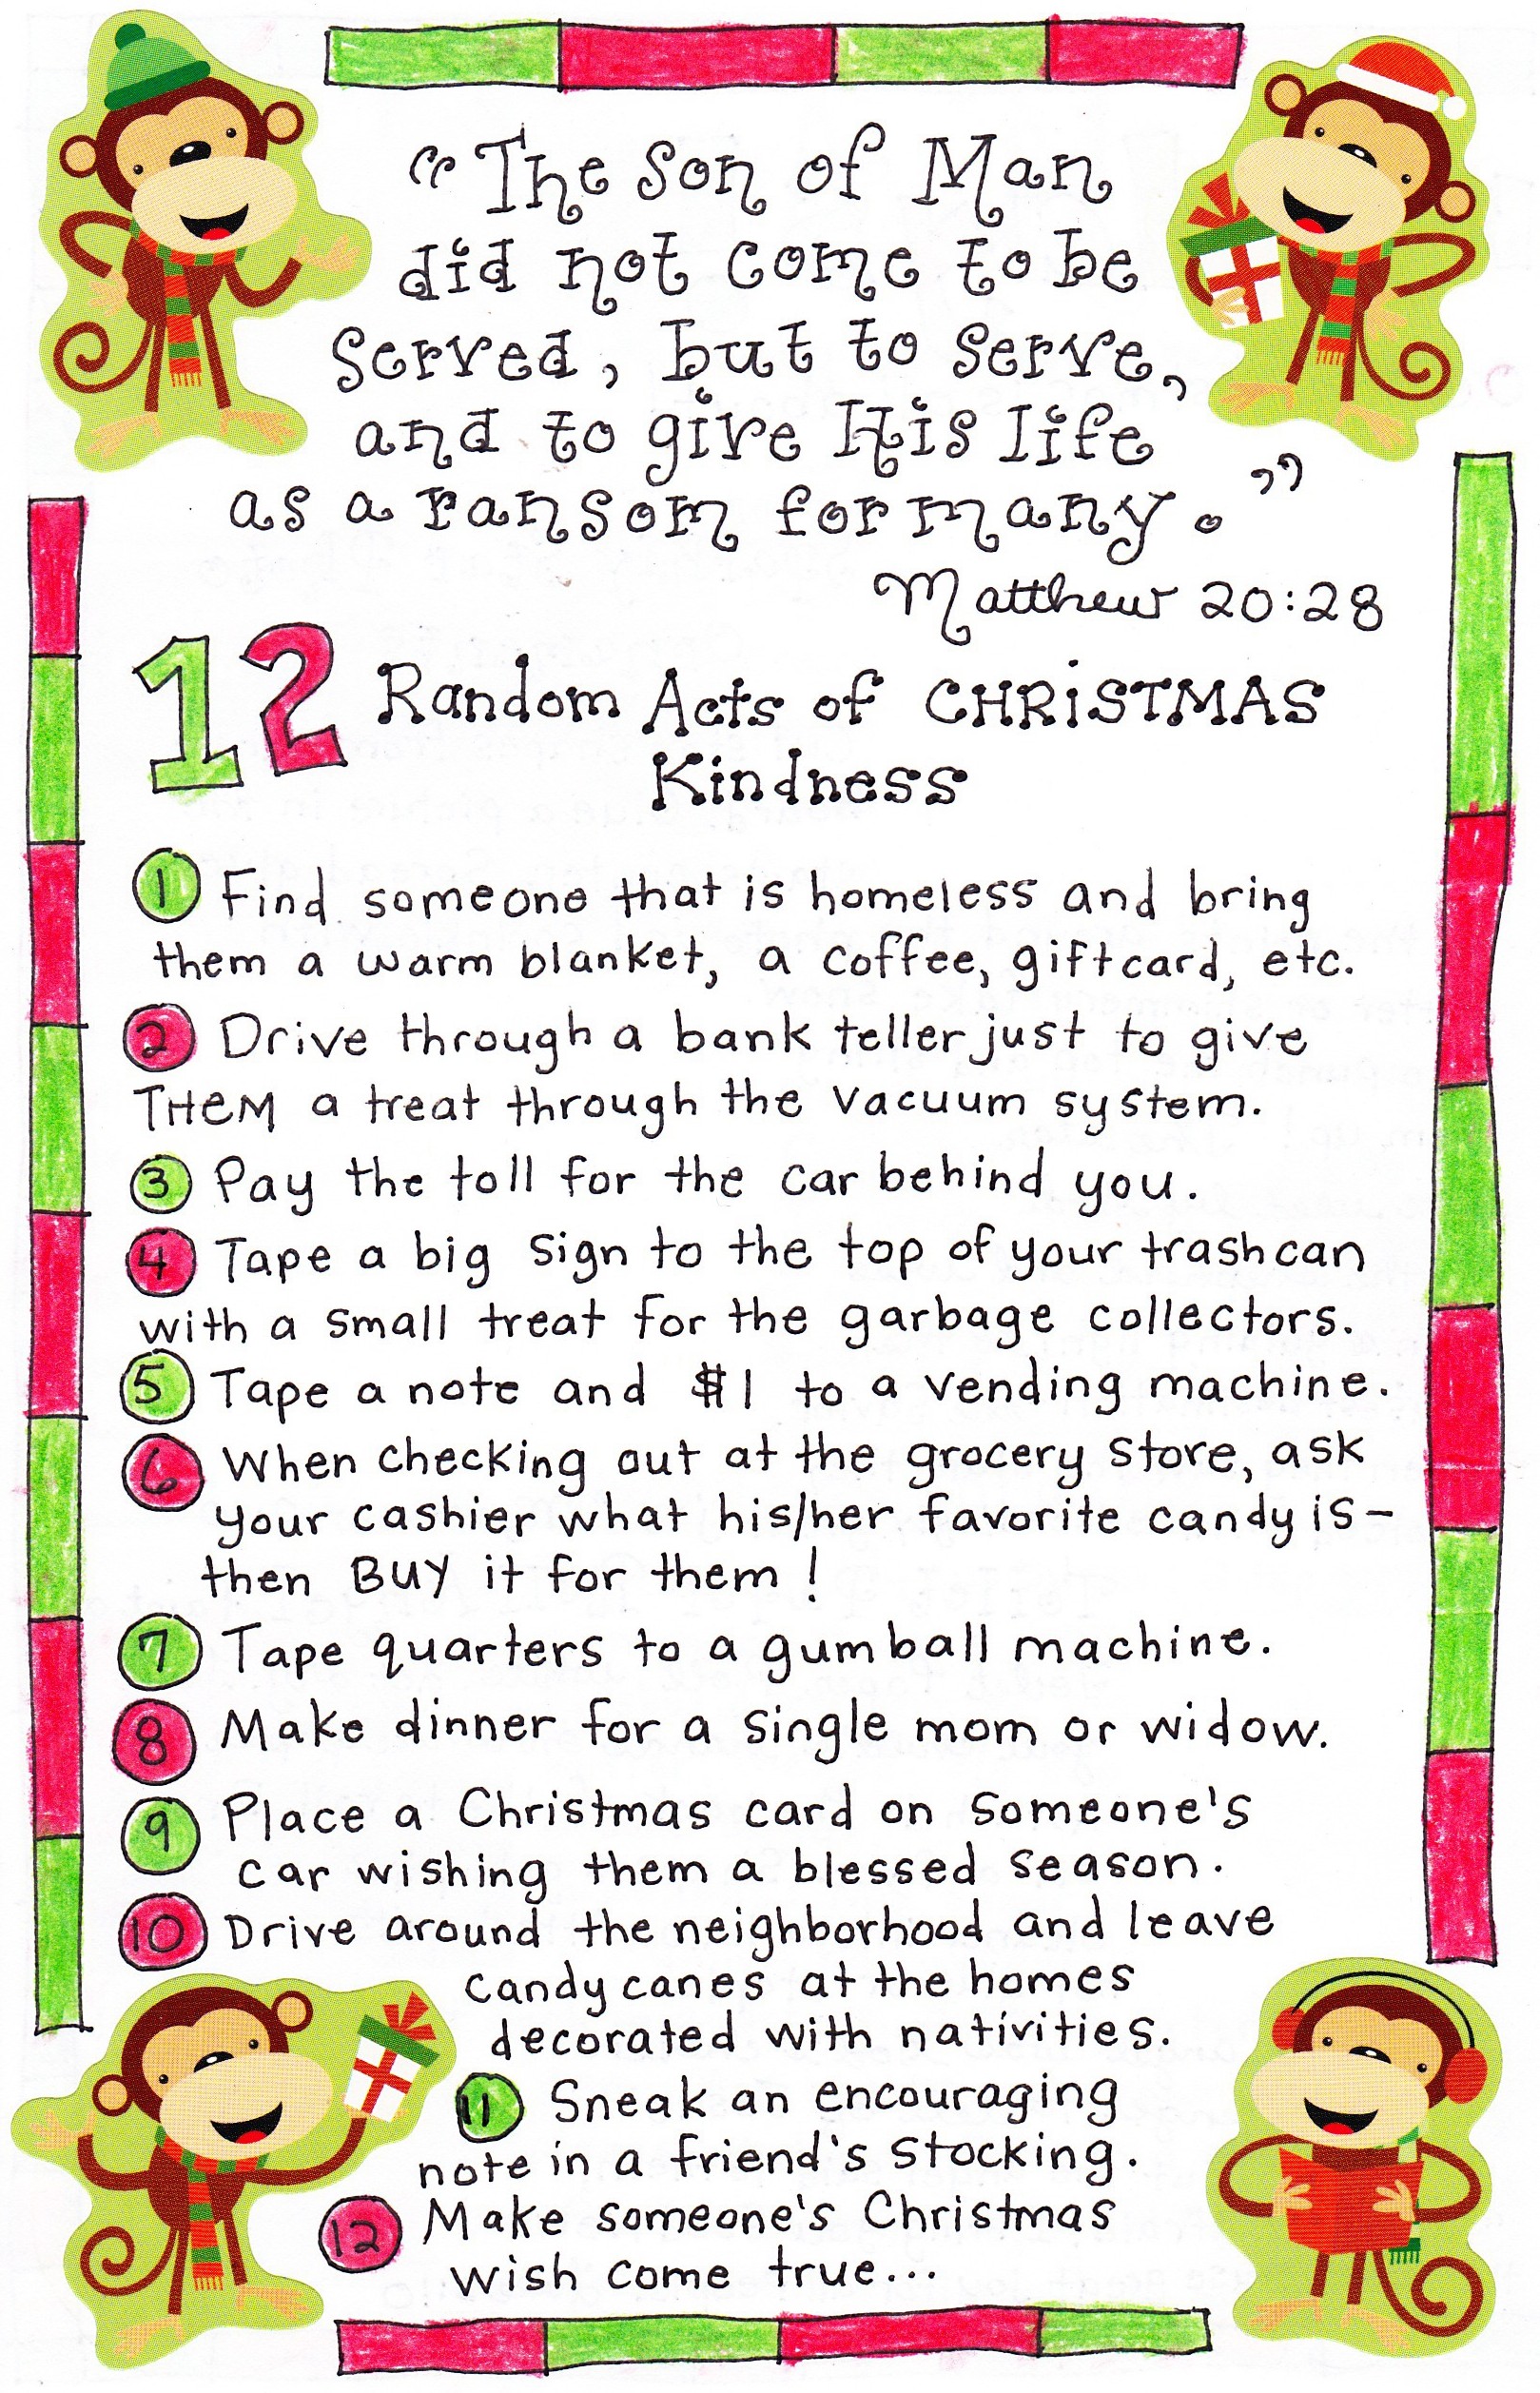 “The Son of Man
did not come to be
served, but to serve,
and to give His life
as a ransom for many.”
Matthew 20:28
12 Random Acts of CHRiSTMAS
Kindness
1 Find someone that is homeless and bring
them a warm blanket, a coffee, giftcard, etc.
2 Drive through a bank teller just to give
THEM a treat through the vacuum system.
3 Pay the toll for the car behind you.
4 Tape a big sign to the top of your trashcan
with a small treat for the garbage collectors.
5 Tape a note and $1 to a vending machine.
6 When checking out at the grocery store, ask
your cashier what his/her favorite candy is-
then BUY it for them!
7 Tape quarters to a gumball machine.
8 Make dinner for a single mom or widow.
9 Place a Christmas card on someone's
car wishing them a blessed season.
10 Drive around the neighborhood and leave
candy canes at the homes
decorated with nativities.
11 Sneak an encouraging
note in a friend's stocking.
12 Make someone's Christmas
wish come true...